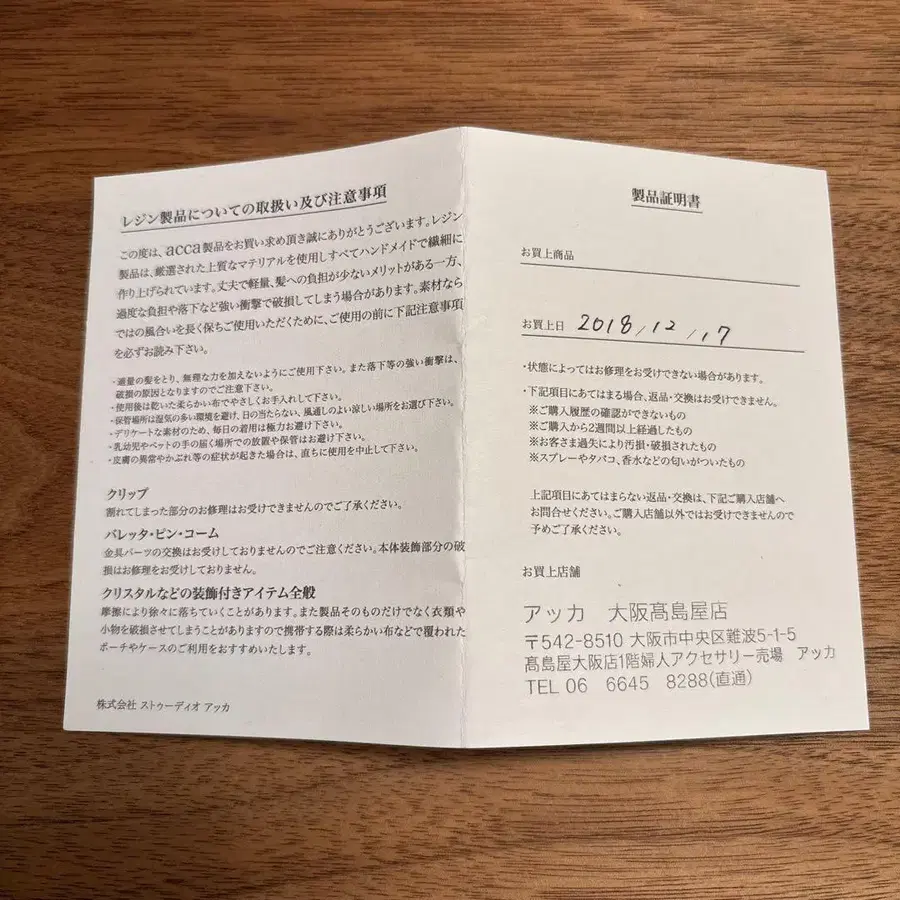 レジン製品についての取扱い及び注意事項
この度は、acca製品をお買い求め頂き誠にありがとうございます。レジン
製品は、厳選された上質なマテリアルを使用しすべてハンドメイドで繊細に
作り上げられています。丈夫で軽量、髪への負担が少ないメリットがある一方、
過度な負担や落下など強い衝撃で破損してしまう場合があります。素材なら
ではの風合いを長く保ちご使用いただくために、ご使用の前に下記注意事項
を必ずお読み下さい。
・適量の髪をとり、無理な力を加えないようにご使用下さい。また落下等の強い衝撃は、
破損の原因となりますのでご注意下さい。
・使用後は乾いた柔らかい布でやさしくお手入れして下さい。
・保管場所は湿気の多い環境を避け、日の当たらない、風通しのよい涼しい場所をお選び下さい。
・デリケートな素材のため、毎日の着用は極力お避け下さい。
・乳幼児やペットの手の届く場所での放置や保管はお避け下さい。
・皮膚の異常やかぶれ等の症状が起きた場合は、直ちに使用を中止して下さい。
クリップ
割れてしまった部分のお修理はお受けできませんのでご了承ください。
バレッタ・ピン・コーム
金具パーツの交換はお受けしておりませんのでご注意ください。本体装飾部分の破
損はお修理をお受けしております。
クリスタルなどの装飾付きアイテム全般
摩擦により徐々に落ちていくことがあります。また製品そのものだけでなく衣類や
小物を破損させてしまうことがありますので携帯する際は柔らかい布などで覆われた
ポーチやケースのご利用をおすすめいたします。
株式会社 ストゥーディオ アッカ
製品証明書
お買上商品
お買上日 2018/12/17
・状態によってはお修理をお受けできない場合があります。
・下記項目にあてはまる場合、返品・交換はお受けできません。
※ご購入履歴の確認ができないもの
※ご購入から2週間以上経過したもの
※お客さま過失により汚損・破損されたもの
※スプレーやタバコ、香水などの匂いがついたもの
上記項目にあてはまらない返品・交換は、下記ご購入店舗へ
お問合せください。ご購入店舗以外ではお受けできませんので
予めご了承ください。
お買上店舗
アッカ 大阪髙島屋店
〒542-8510 大阪市中央区難波5-1-5
髙島屋大阪店1階婦人アクセサリー売場 アッカ
TEL 06 6645 8288(直通)